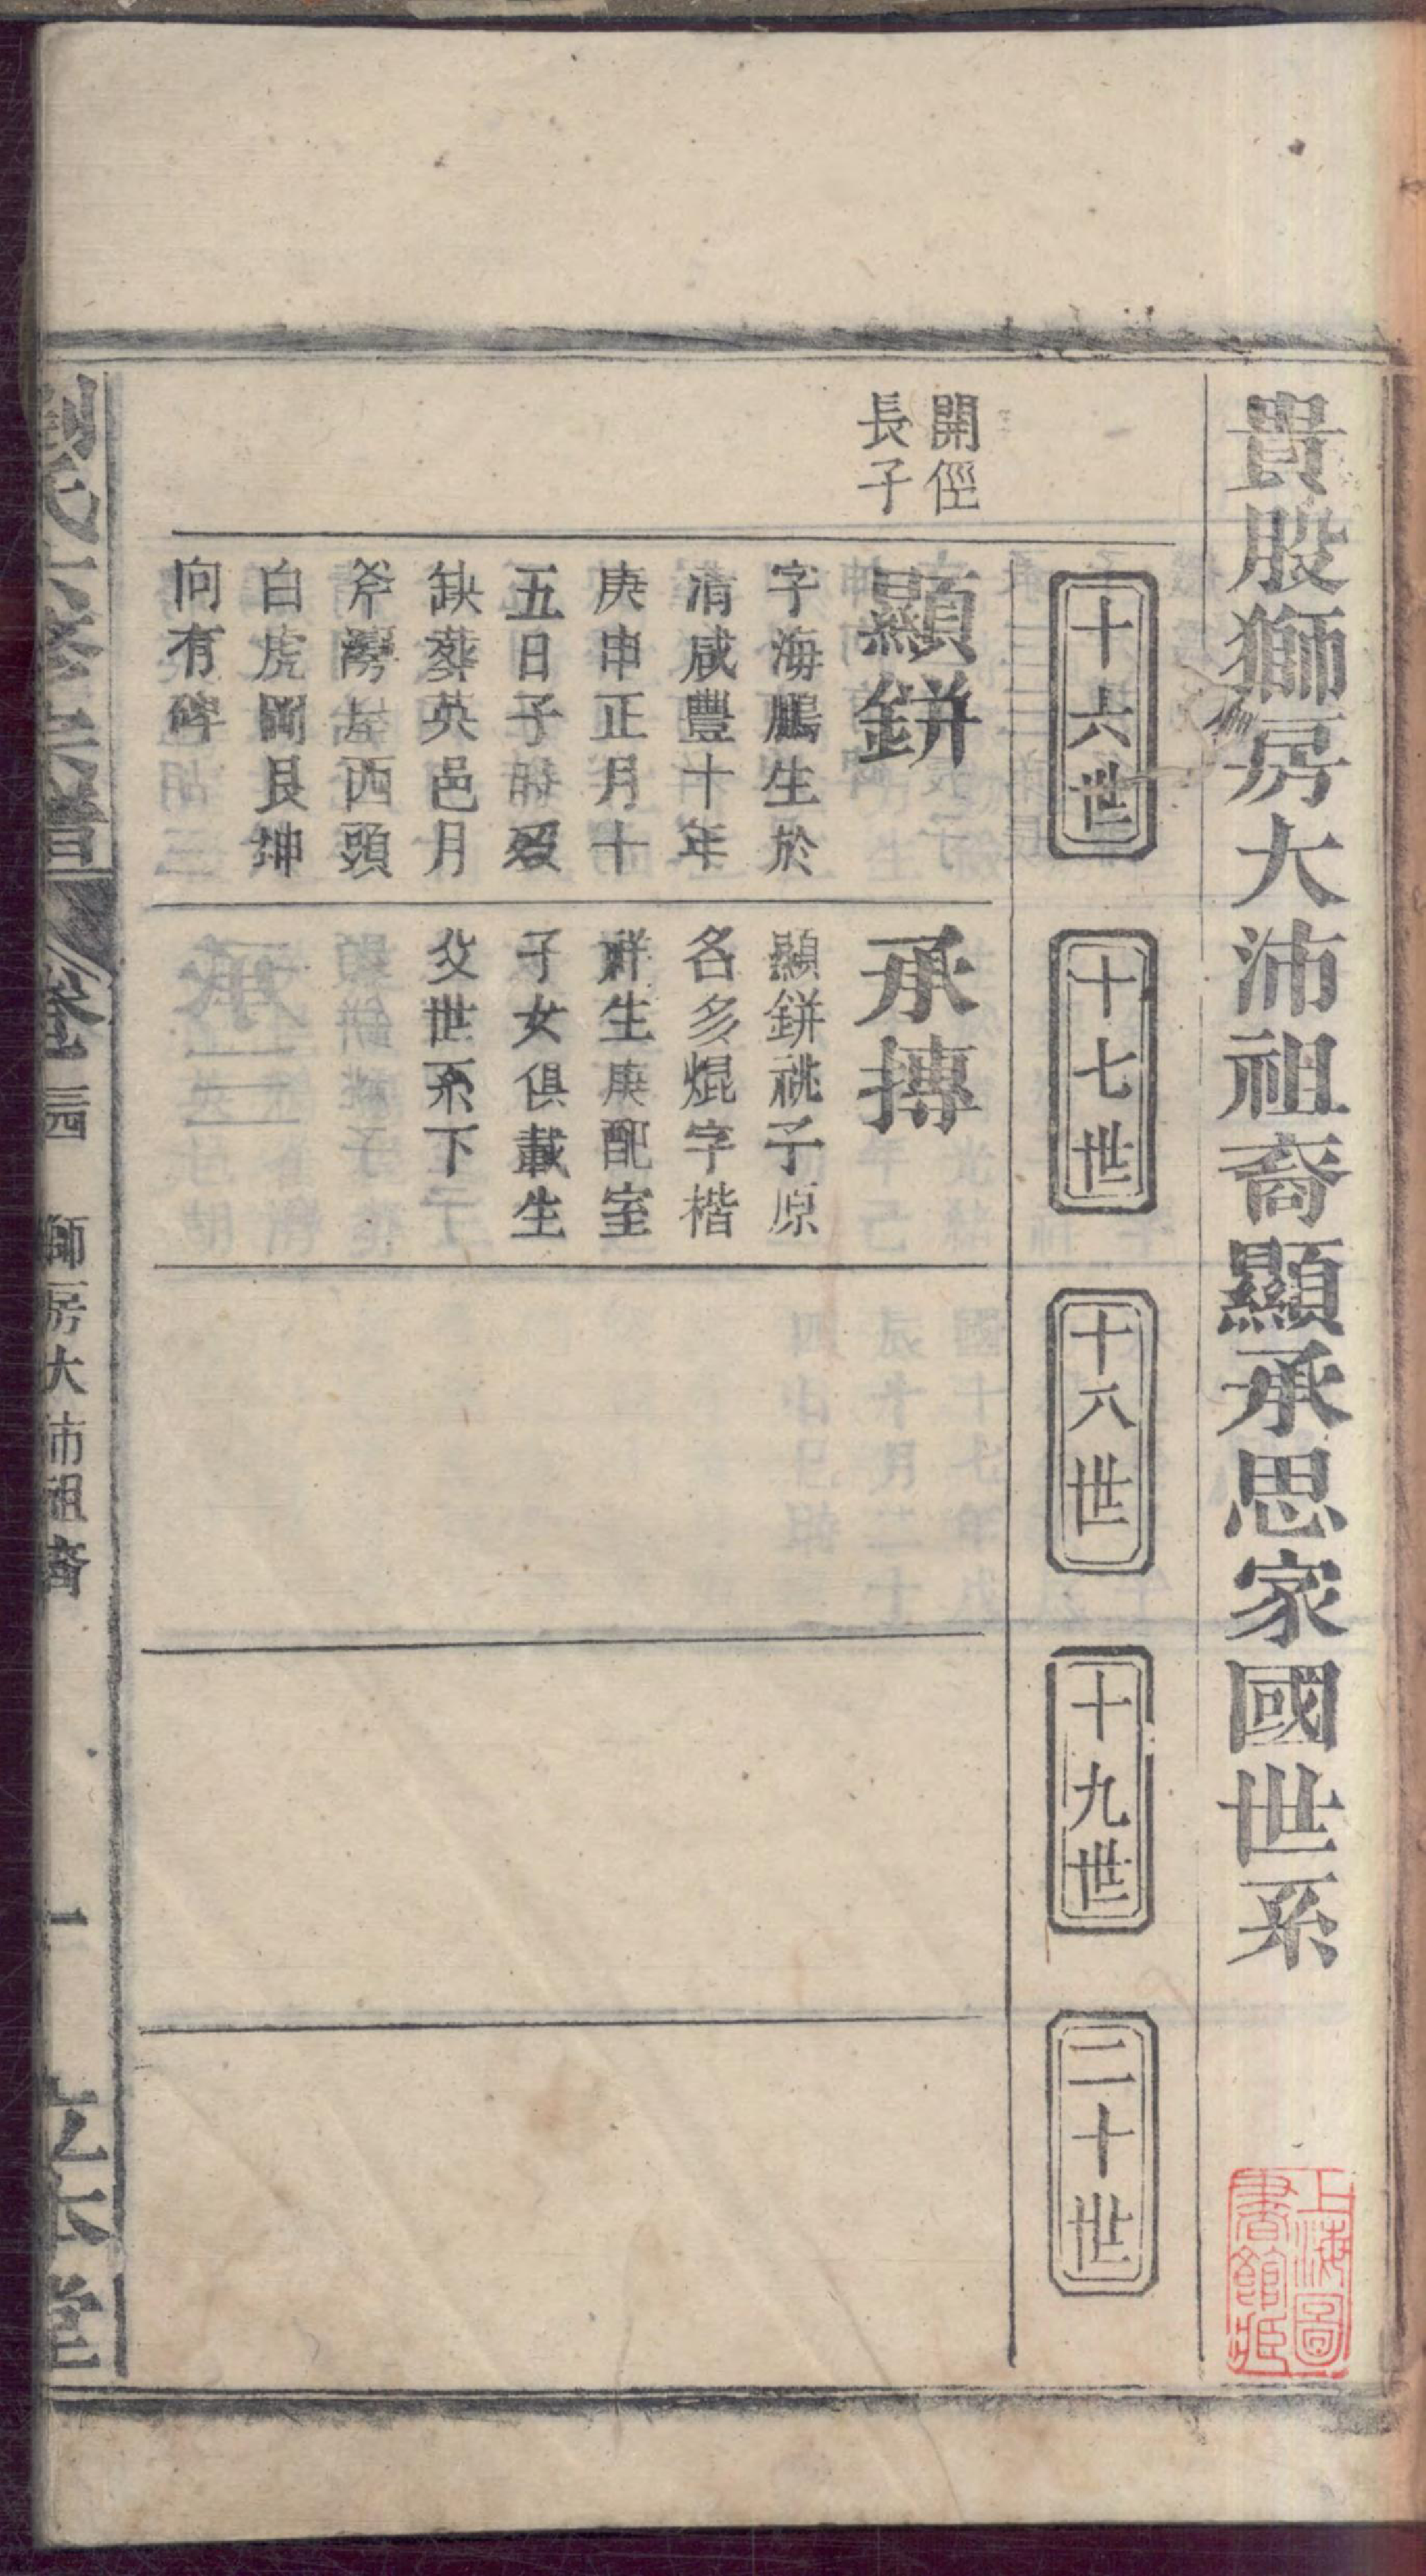 貴股獅房大沛祖裔顯承思家國世系
上海圖
書館藏
十六世
十七世
十八世
十九世
二十世
開俓
長子
顯鉼
字海鵬生於
清咸豐十年
庚申正月十
五日子時歿
缺葬英邑月
斧灣左西頭
白虎岡艮坤
向有碑
承摶
顯鉼祧子原
名多焜字楷
祥生庚配室
子女俱載生
父世系下
卷三四
獅房大沛祖裔
一
立本堂